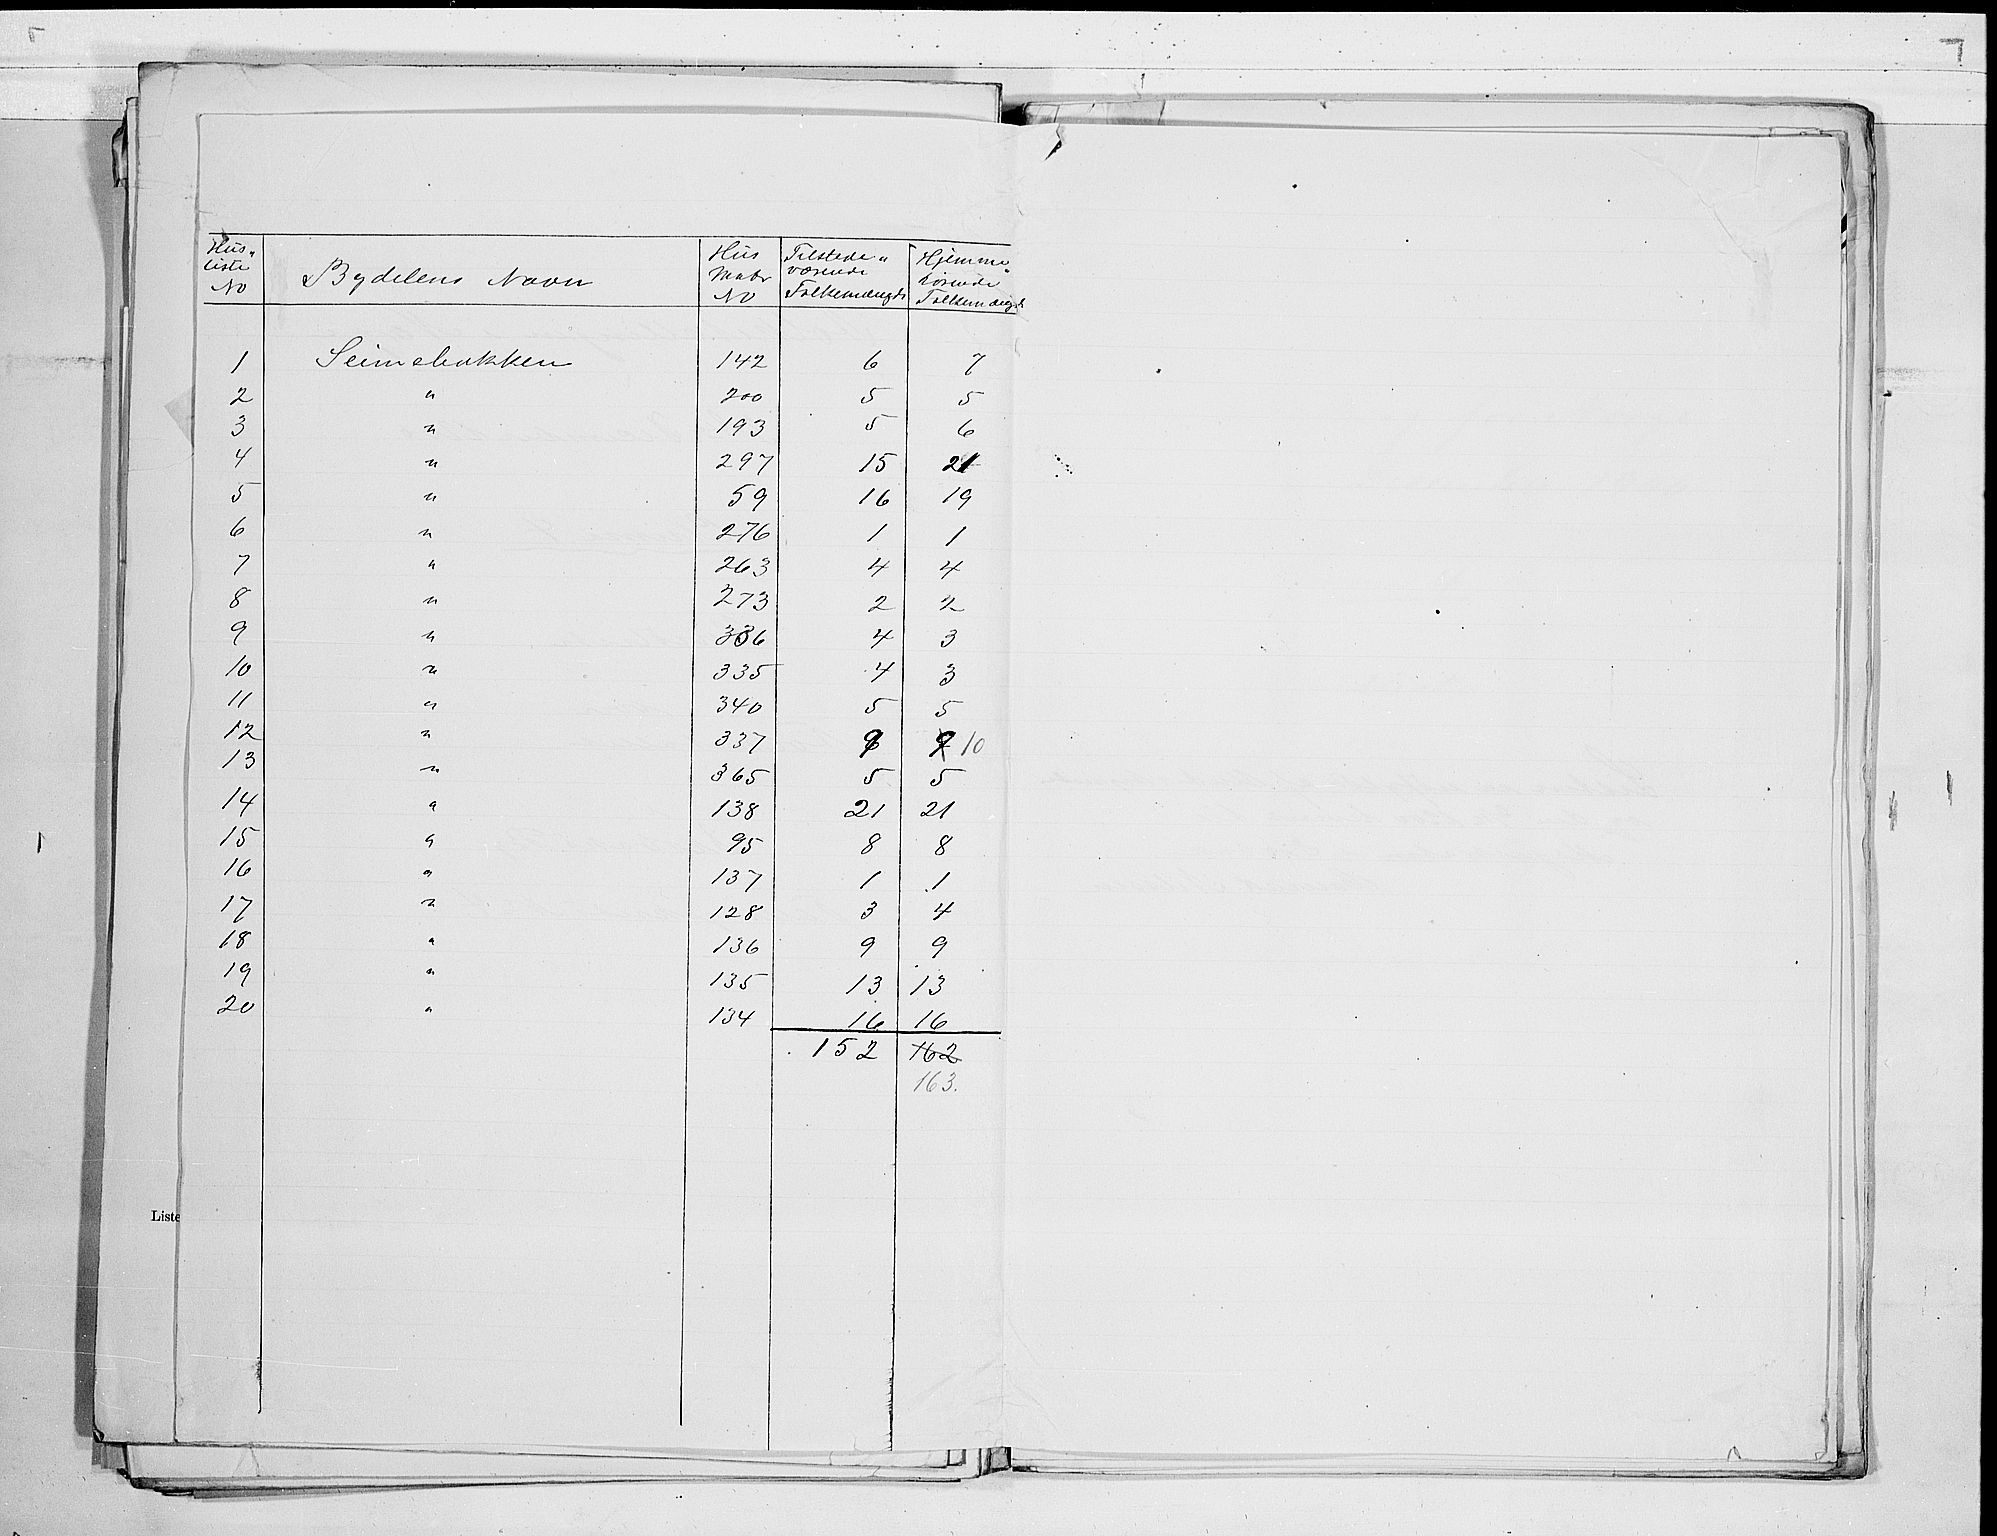 Hus- liste No	Bydelens Navn	Hus Matr No	Tilstede- værende Folkemængde	Hjemme- hørende Folkemængde
1 Seimsbakken 142 6 7
2 " 200 5 5
3 " 193 5 6
4 " 297 15 21
5 " 59 16 19
6 " 276 1 1
7 " 263 4 4
8 " 273 2 2
9 " 336 4 3
10 " 335 4 3
11 " 340 5 5
12 " 337 9 9 10
13 " 365 5 5
14 " 138 21 21
15 " 95 8 8
16 " 137 1 1
17 " 128 3 4
18 " 136 9 9
19 " 135 13 13
20 " 134 16 16
152 162
163.
Liste